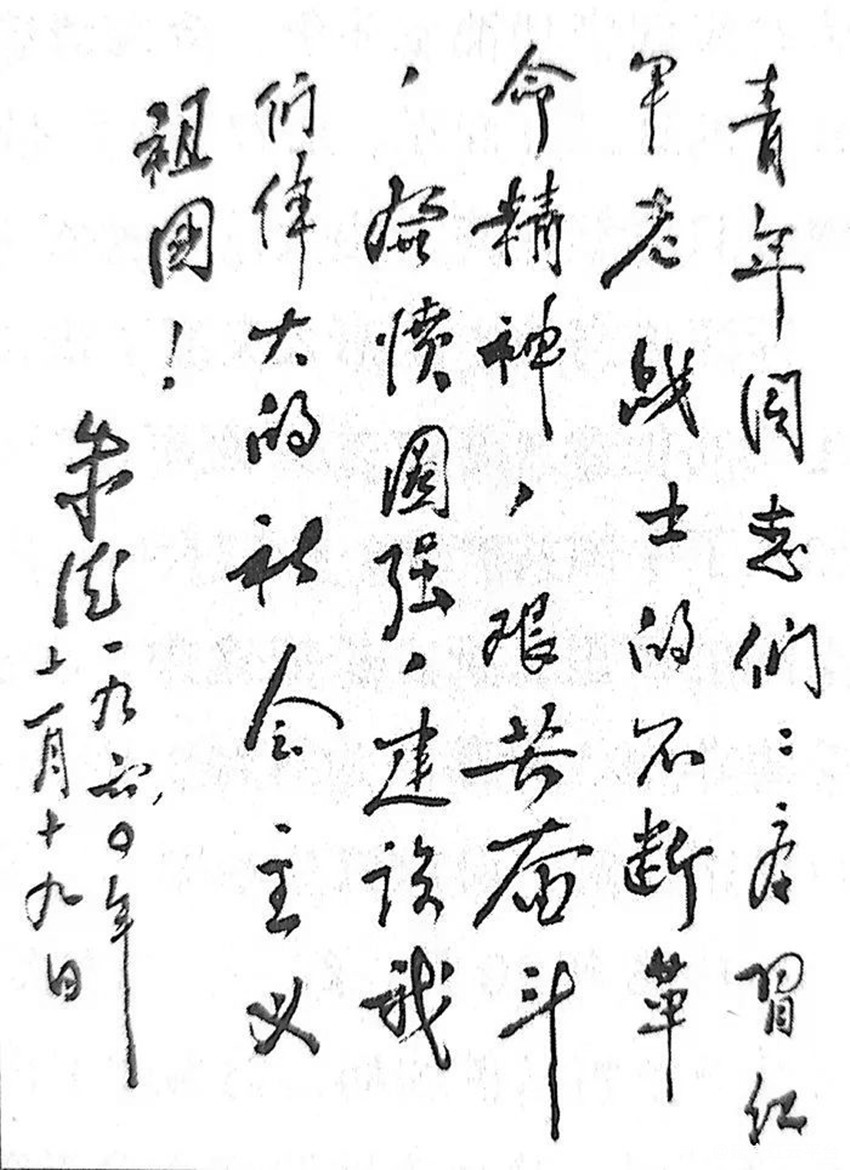 青年同志们：学習红
军老战士的不断革
命精神，艰苦奋斗
，發愤图强，建设我
们伟大的社会主义
祖国！
朱德一九六〇年
十一月十九日